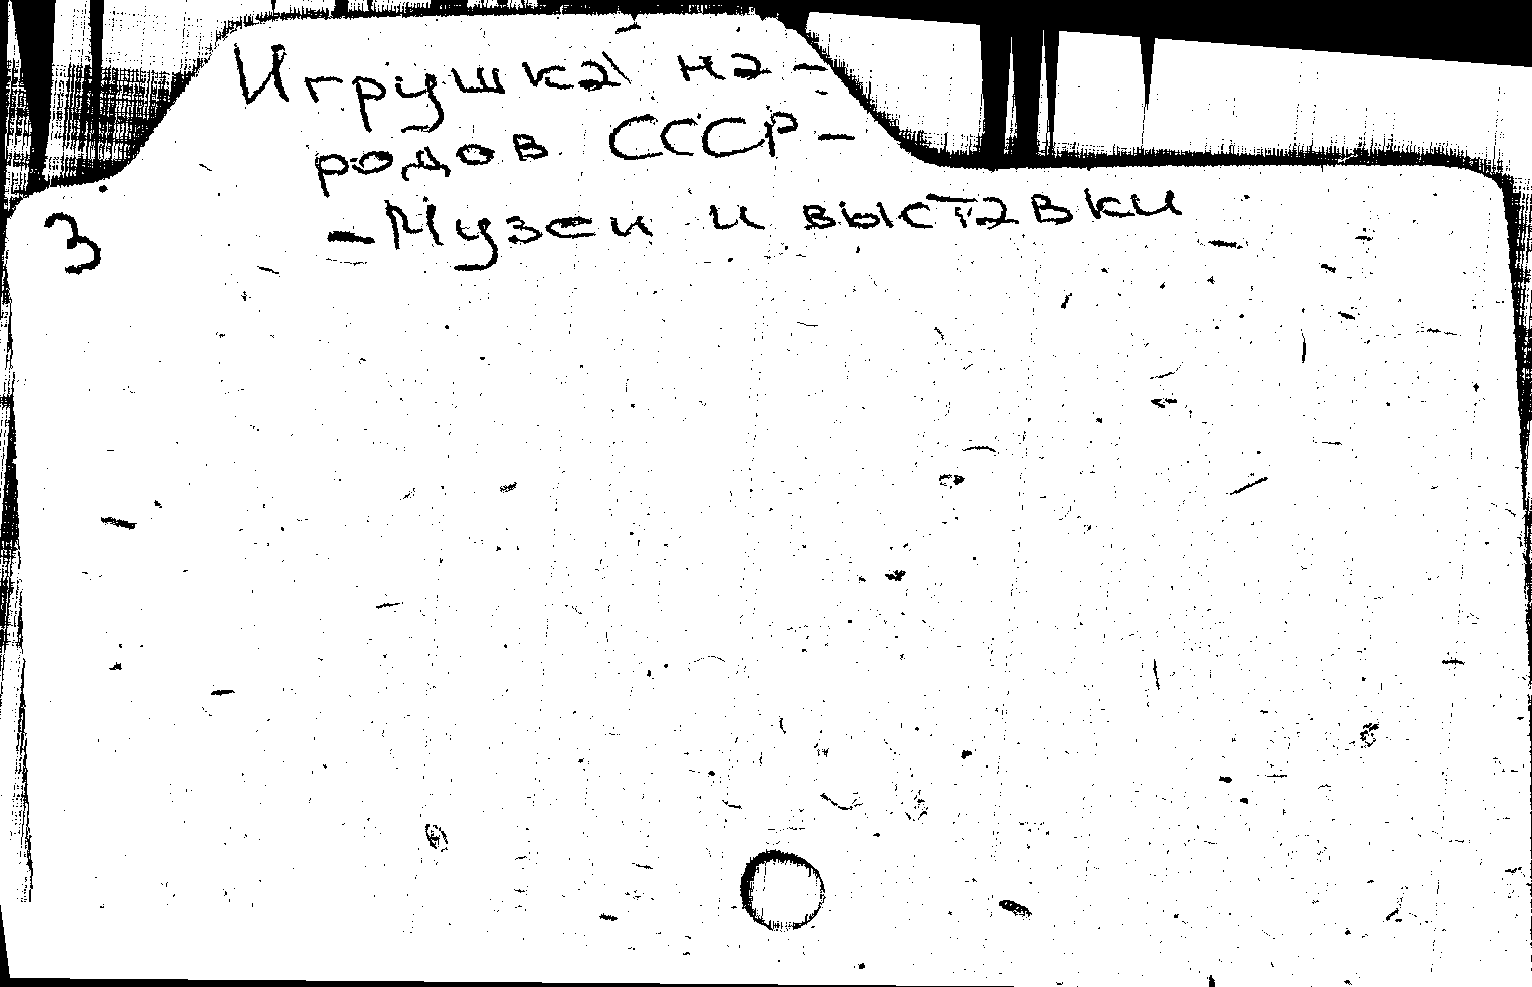 Игрушка на-
родов СССР -
3 - Музеи и выставки